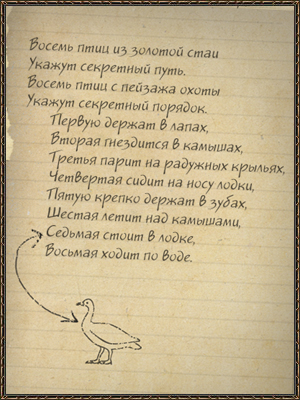 Восемь птиц из золотой стаи
Укажут секретный путь.
Восемь птиц с пейзажа охоты
Укажут секретный порядок.
Первую держат в лапах,
Вторая гнездится в камышах,
Третья парит на радужных крыльях,
Четвертая сидит на носу лодки,
Пятую крепко держат в зубах,
Шестая летит над камышами,
Седьмая стоит в лодке,
Восьмая ходит по воде.